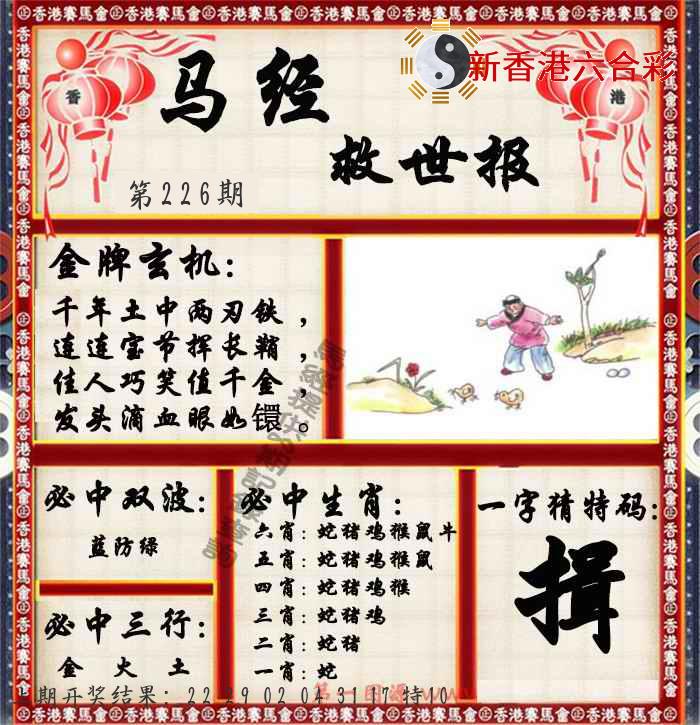 新香港六合彩
香
港
马经
救世报
第226期
金牌玄机:
千年土中两刃铁，
连连宝节挥长鞘，
佳人巧笑值千金，
发头滴血眼如镮。
必中双波:
蓝防绿
必中三行:
金火土
必中生肖:
六肖: 蛇猪鸡猴鼠牛
五肖: 蛇猪鸡猴鼠
四肖: 蛇猪鸡猴
三肖: 蛇猪鸡
二肖: 蛇猪
一肖: 蛇
一字猜特码:
揖
期开奖结果: 22 29 02 04 31 17 特
第一图源
香港賽馬會